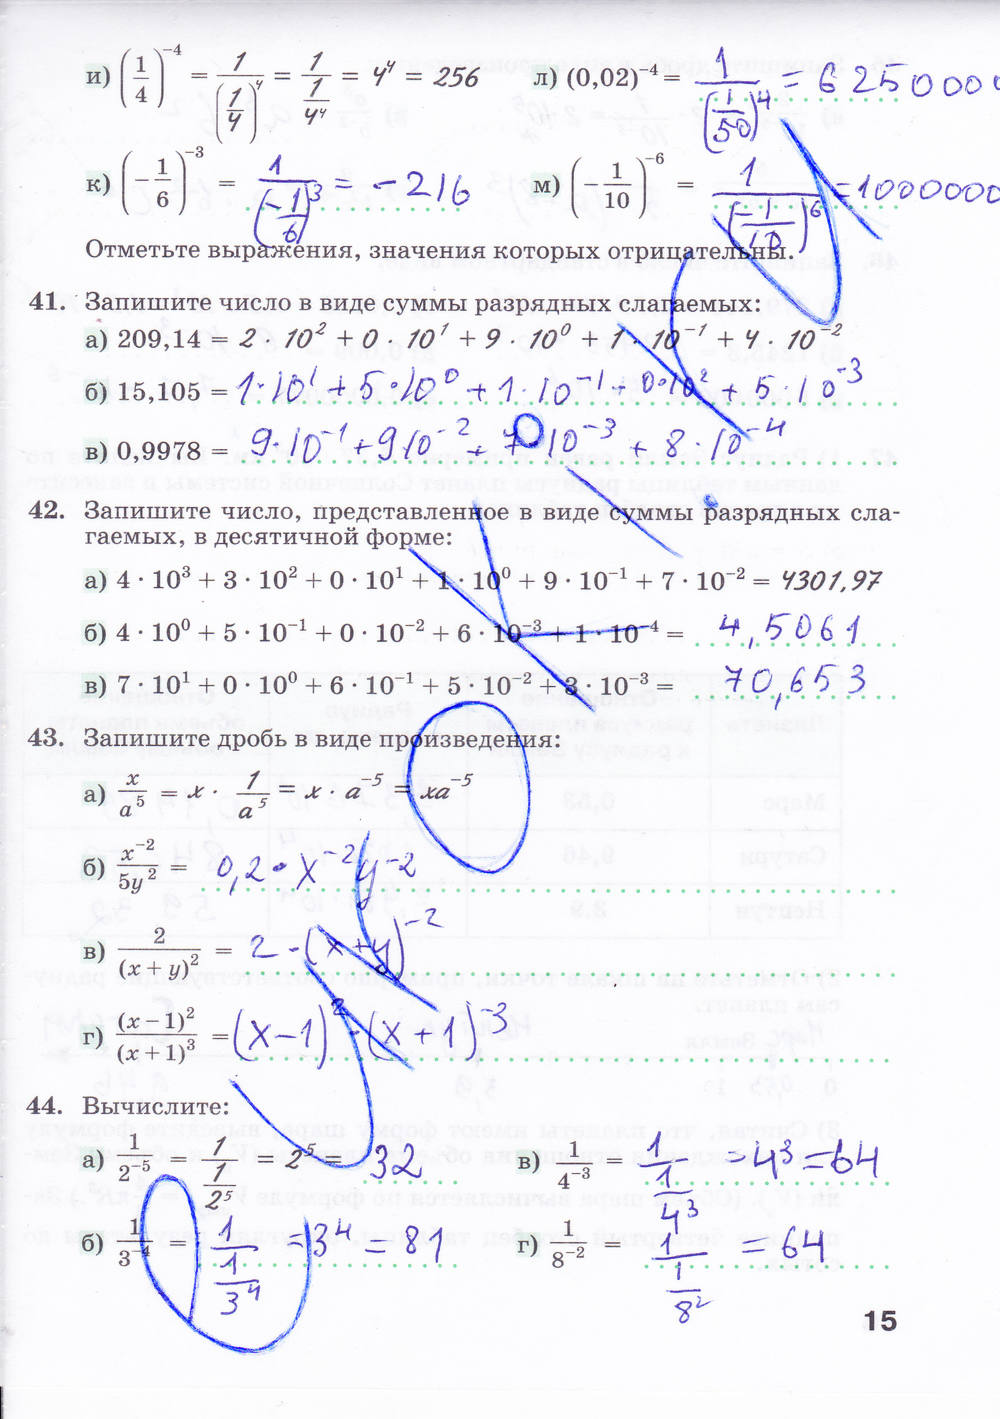 и) (1/4)^-4 = 1/(1/4)^4 = 1/(1/4^4) = 4^4 = 256
л) (0,02)^-4 = 1/(1/50)^4 = 6250000
к) (-1/6)^-3 = 1/(-1/6)^3 = -216
м) (-1/10)^-6 = 1/(-1/10)^6 = 1000000
Отметьте выражения, значения которых отрицательны.
41. Запишите число в виде суммы разрядных слагаемых:
а) 209,14 = 2 · 10^2 + 0 · 10^1 + 9 · 10^0 + 1 · 10^-1 + 4 · 10^-2
б) 15,105 = 1·10^1 + 5·10^0 + 1·10^-1 + 0·10^2 + 5·10^-3
в) 0,9978 = 9·10^-1 + 9·10^-2 + 7·10^-3 + 8·10^-4
42. Запишите число, представленное в виде суммы разрядных сла-
гаемых, в десятичной форме:
а) 4 · 10^3 + 3 · 10^2 + 0 · 10^1 + 1 · 10^0 + 9 · 10^-1 + 7 · 10^-2 = 4301,97
б) 4 · 10^0 + 5 · 10^-1 + 0 · 10^-2 + 6 · 10^-3 + 1 · 10^-4 = 4,5061
в) 7 · 10^1 + 0 · 10^0 + 6 · 10^-1 + 5 · 10^-2 + 3 · 10^-3 = 70,653
43. Запишите дробь в виде произведения:
а) x/a^5 = x · 1/a^5 = x · a^-5 = xa^-5
б) x^-2/5y^2 = 0,2 · x^-2 y^-2
в) 2/(x + y)^2 = 2 · (x + y)^-2
г) (x – 1)^2/(x + 1)^3 = (x – 1)^2 · (x + 1)^-3
44. Вычислите:
а) 1/2^-5 = 1/(1/2^5) = 2^5 = 32
в) 1/4^-3 = 1/(1/4^3) = 4^3 = 64
б) 1/3^-4 = 1/(1/3^4) = 3^4 = 81
г) 1/8^-2 = 1/(1/8^2) = 64
15